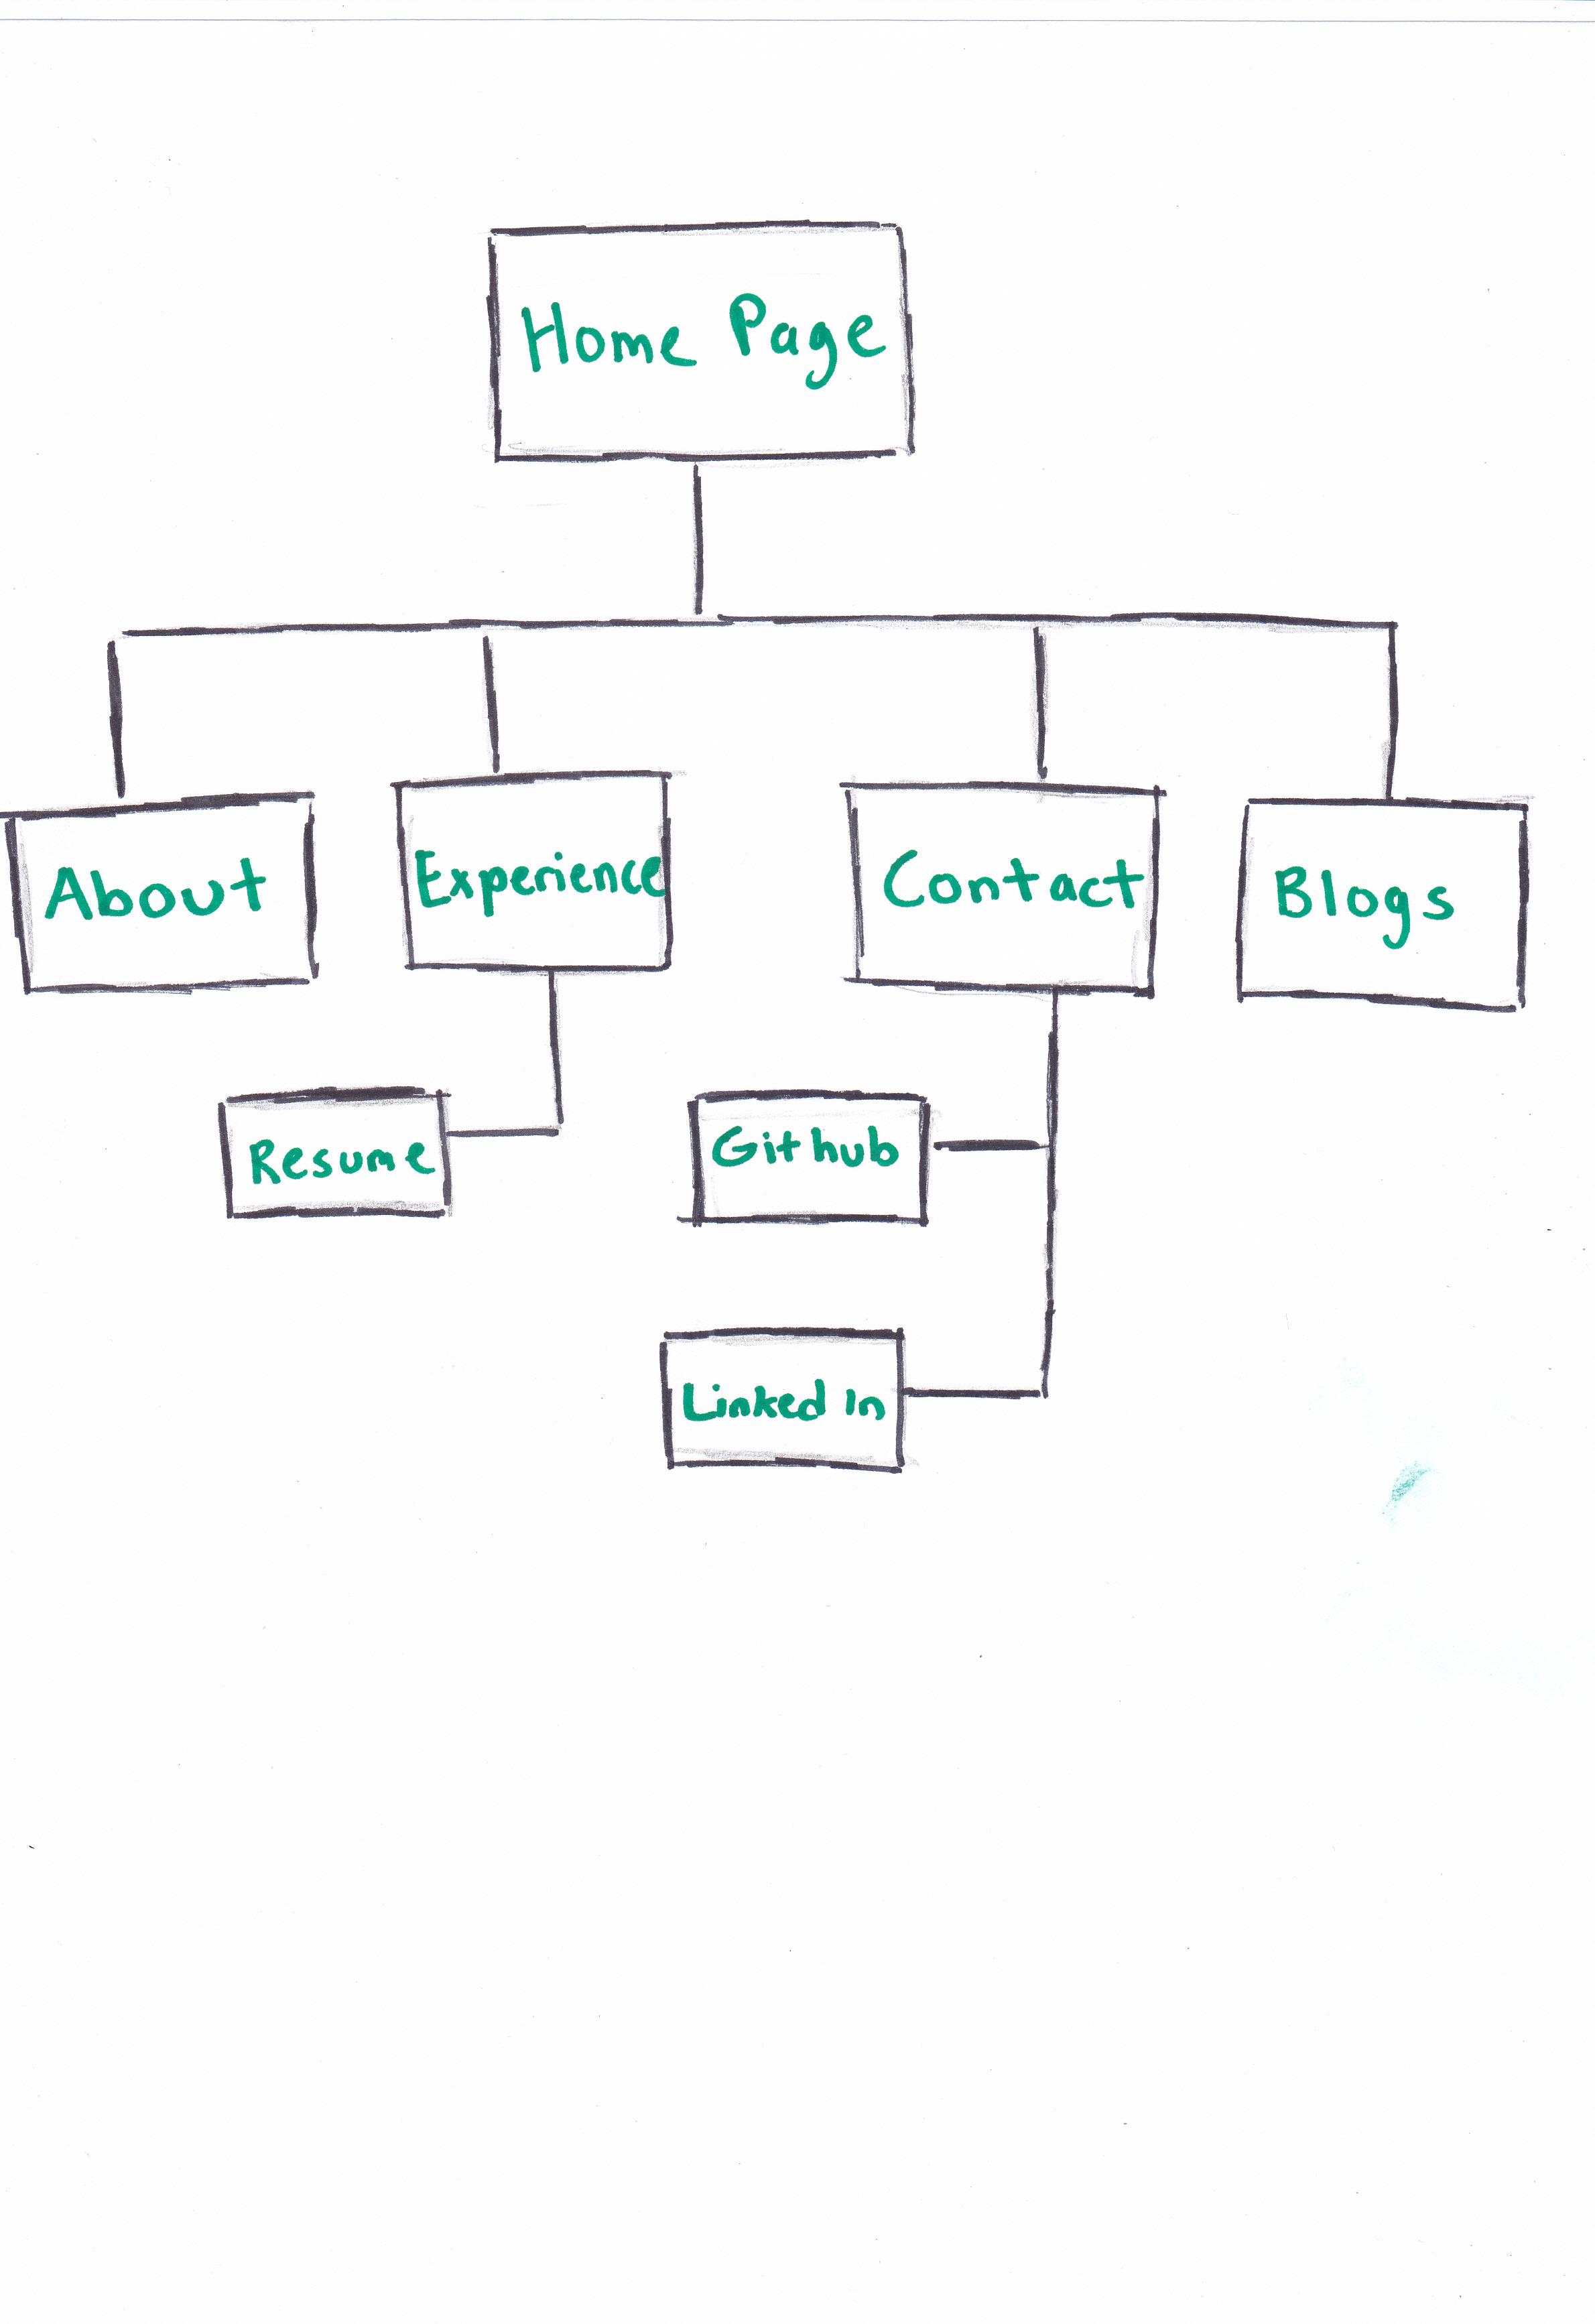 Home Page
About
Experience
Contact
Blogs
Resume
Github
Linked In